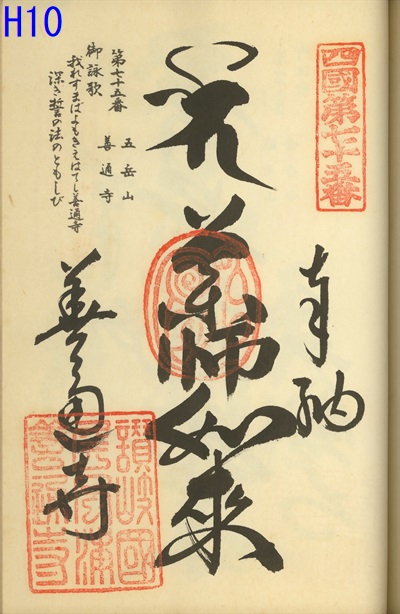 H10
四國第七十五番
奉納
薬師如来
五岳山
第七十五番
善通寺
御詠歌
我れすまばよもきえはてじ善通寺
深き誓の法のともしび
善通寺
讃岐國
屏風浦
善通寺